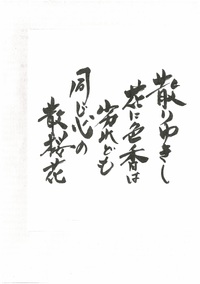 散りゆきし
花に色香は
劣れども
同じ心の
散桜花